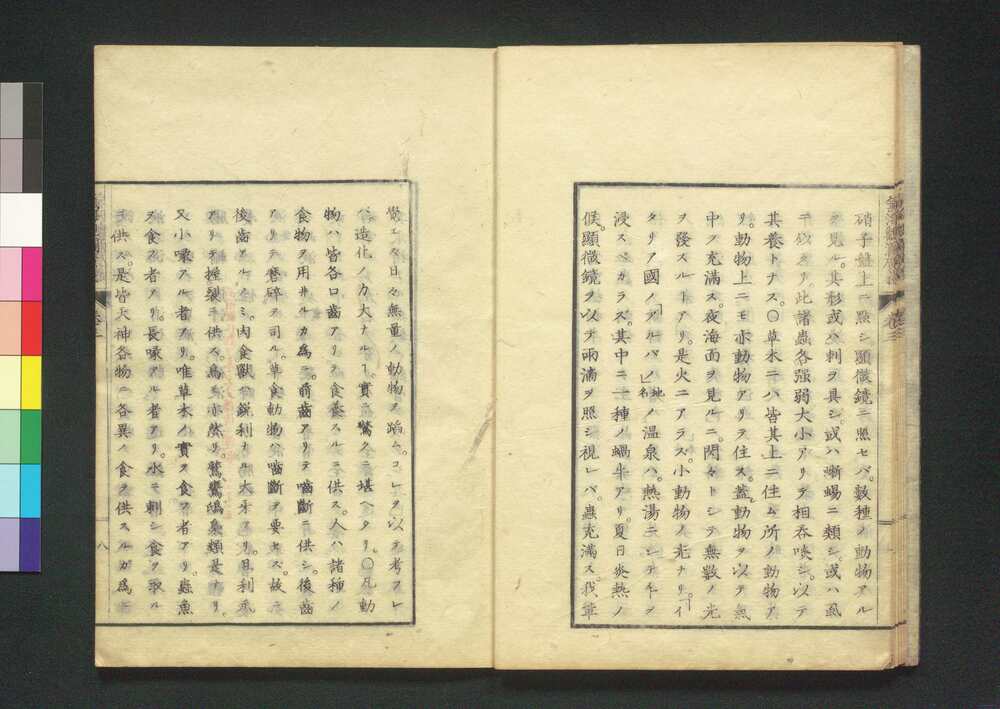 硝子盤上ニ點シ顯微鏡ニ照セバ。數種ノ動物アル
ヲ見ル。其形或ハ刺ヲ具シ。或ハ蜥蜴ニ類シ。或ハ虱
ニ似タリ。此諸蟲各强弱大小アリテ相吞啖シ。以テ
其養トナス。〇草木ニハ皆其上ニ住ム所ノ動物ア
リ。動物上ニモ亦動物アリテ住ス。蓋動物ヲ以テ無
中ヲ充滿ス。夜海面ヲ見ルニ。閃々トシテ無數ノ光
ヲ發スルヿアリ。是火ニアラス。小動物ノ光ナリ。「イ
タリア國ノ「アルバノ」地名ノ温泉ハ。熱湯ニシテ手ヲ
浸スベカラス。其中ニ一種ノ蝸牛アリ。夏日炎熱ノ
候。顯微鏡ヲ以テ雨滴ヲ照シ視レバ。蟲充滿ス。我輩
覺エス日々無量ノ動物ヲ蹈ム。コレヲ以テ考フレ
バ。造化ノ力大ナルヿ。實ニ驚クニ堪ヘタリ。〇凡動
物ハ皆各口齒アリテ食養スルニ供ス。人ハ諸種ノ
食物ヲ用井ルカ爲ニ。前齒アリテ嚙斷ニ供シ。後齒
アリテ磨碎ヲ司ル。草食動物ハ嚙斷ヲ要セス。故ニ
後齒アルノミ。肉食獸ハ銳利ナル大牙アリ。且利爪
アリテ挫裂ニ供ス。鳥モ亦然リ。鷲鷹鴟梟類是ナリ。
又小喙アル者アリ。唯草木ノ實ヲ食フ者アリ。蟲魚
ヲ食フ者アリ。長喙アル者アリ。水ニ刺シ食ヲ取ル
ニ供ス。是皆天神各物ニ各異ノ食ヲ供スルガ爲ニ
卷三
八